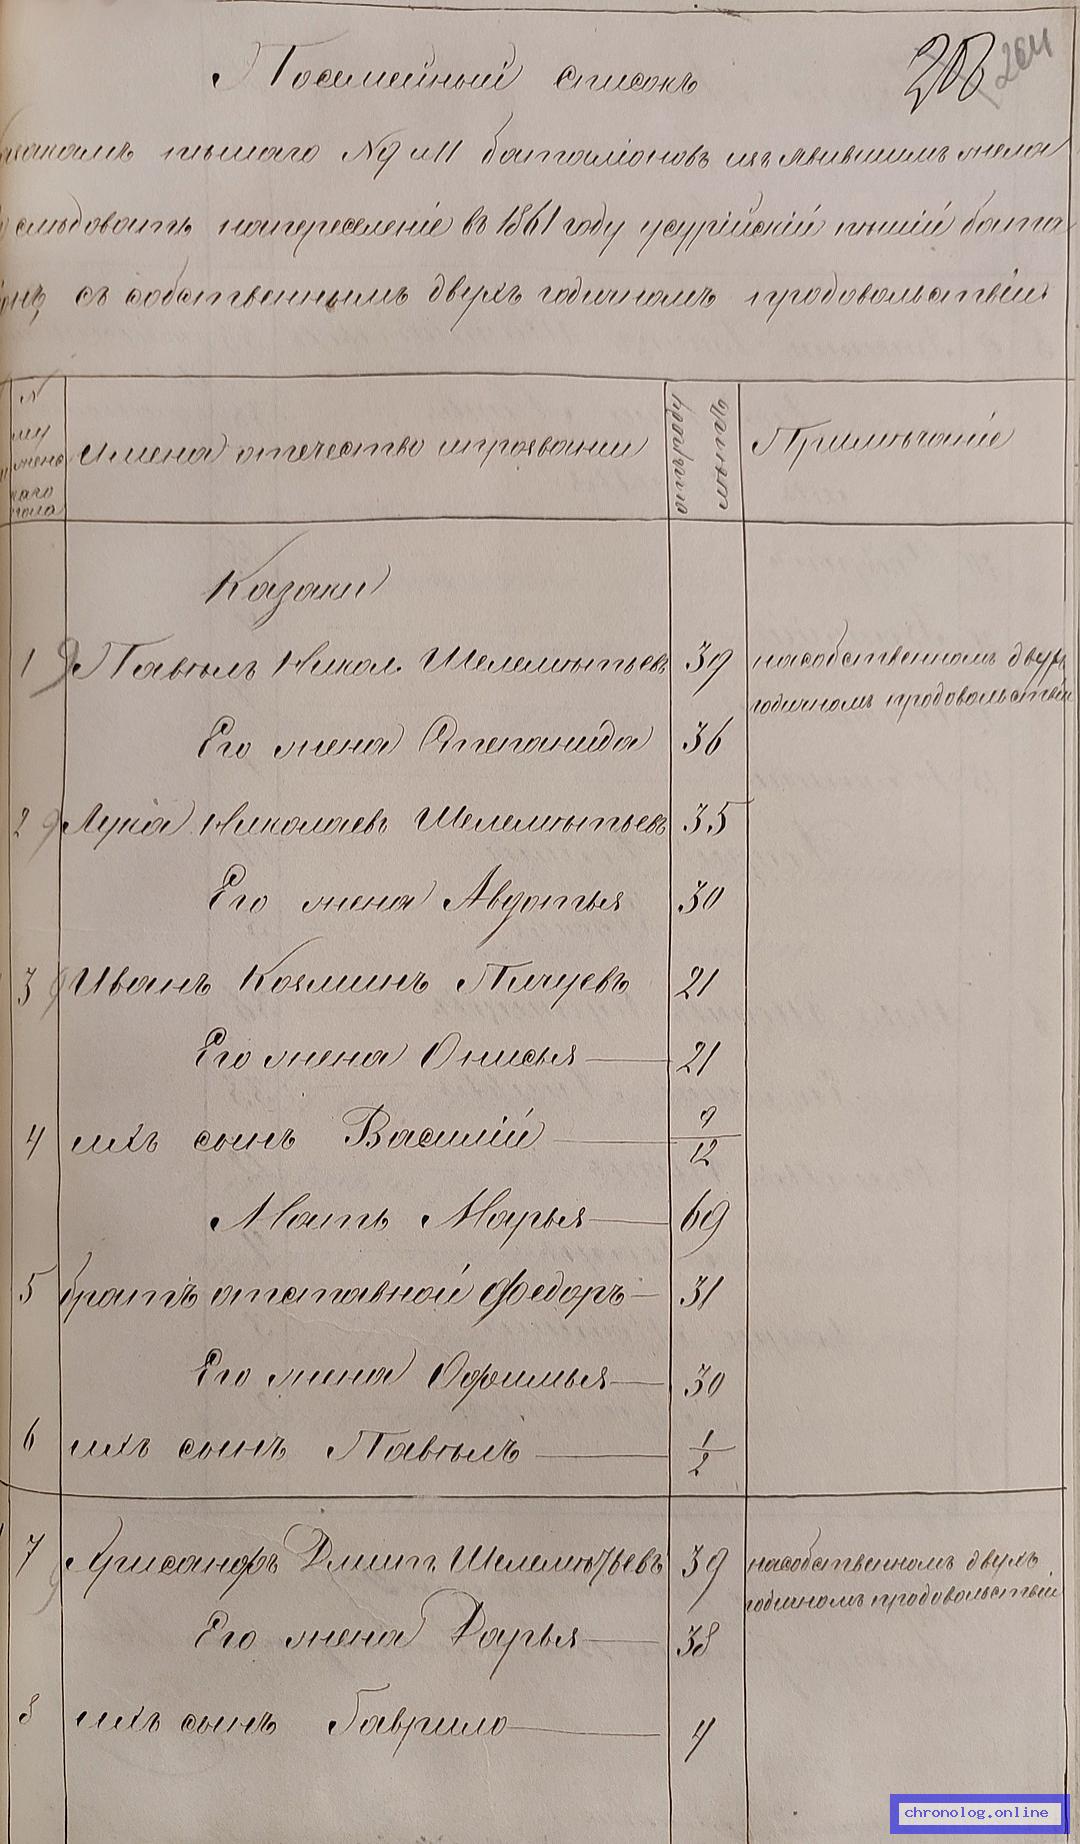 Посемейный списокъ
208 264
казакамъ пешаго №9 и 11 баталіоновъ изъявившимъ жела
следовать на переселеніе въ 1861 году усурійскій пешій бата
съ собственнымъ двухъ годичномъ продовольствіи
№
му
женс
каго
пола
имена отечество и прозвании
отъ роду летъ
Примечаніе
Казаки
1 Павелъ Никол. Шелементьевъ 39 на собственномъ двухъ
годичномъ продовольствіи
Его жена Степанида 36
2 Лука Николаевъ Шелементьевъ 35
Его жена Авдотья 30
3 Иванъ Козминъ Пичуевъ 21
Его жена Онисья 21
4 ихъ сынъ Василій 9/12
Мать Марья 69
5 братъ отставной Федоръ 31
Его жена Офимья 30
6 ихъ сынъ Павелъ 1/2
7 Хрисанфъ Дмит. Шелементьевъ 39 на собственномъ двухъ
годичномъ продовольствіи
Его жена Дарья 38
8 ихъ сынъ Гаврило 4
chronolog.online